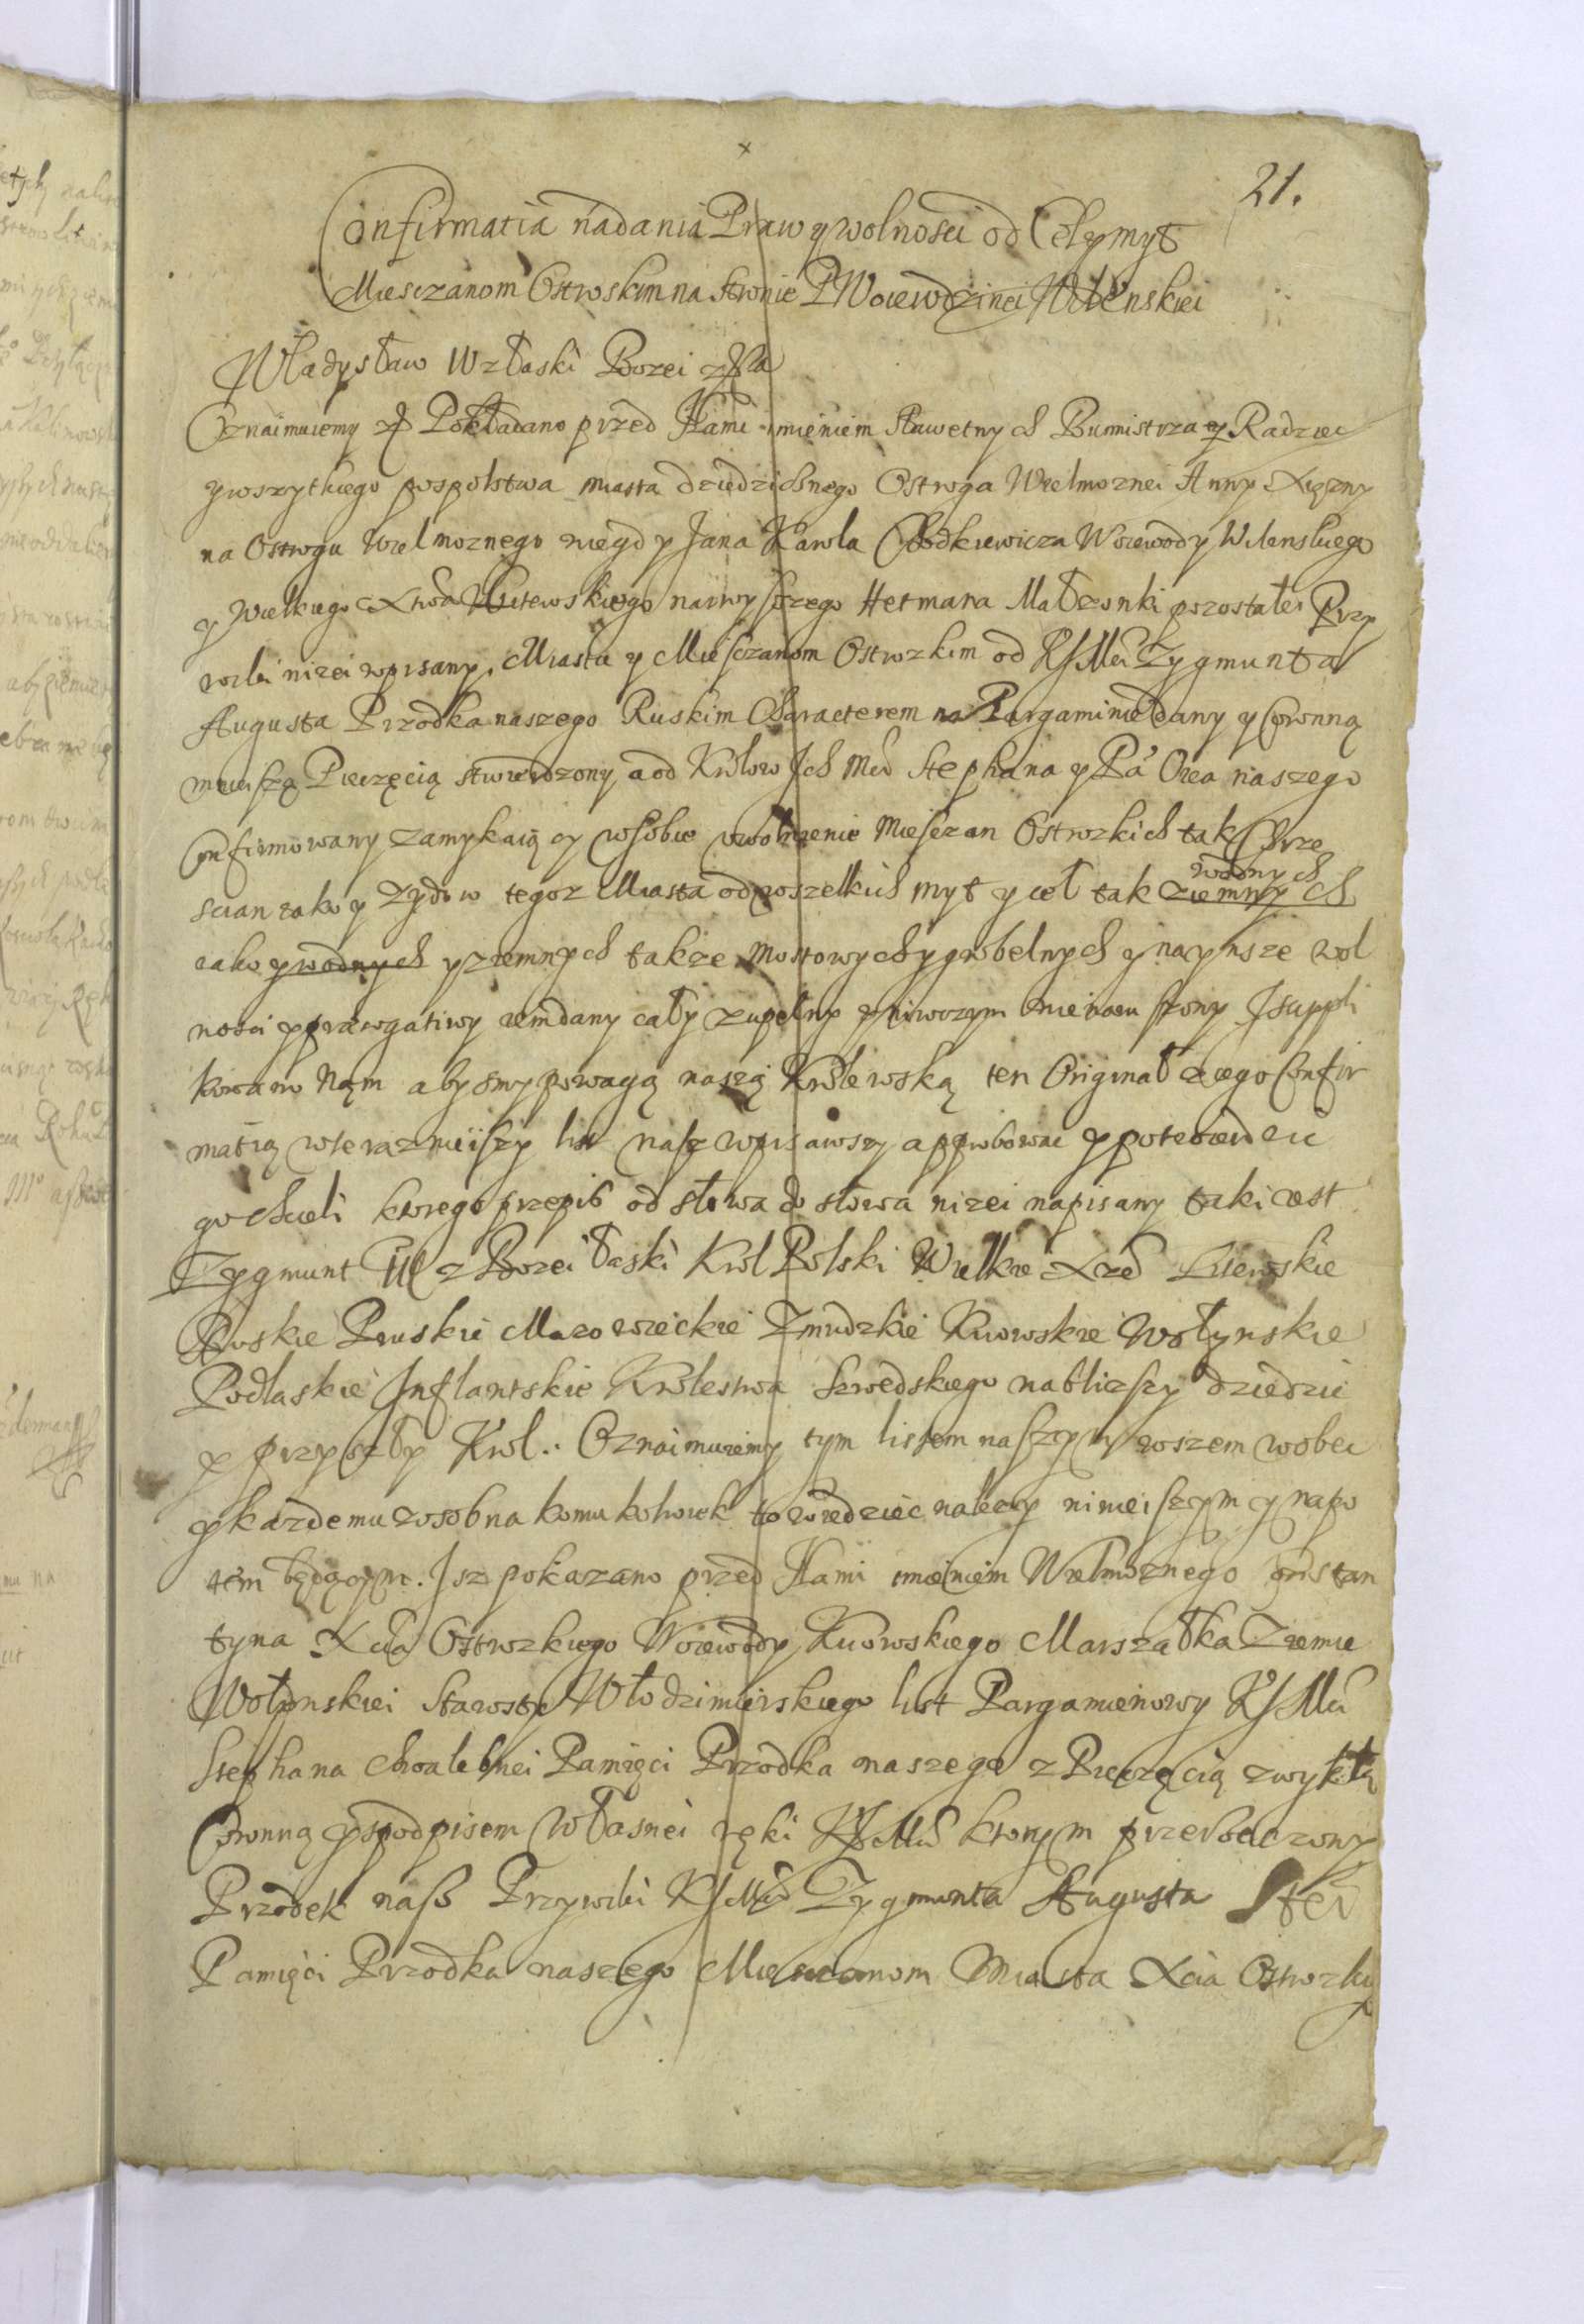 21.
Confirmatia nadania Praw y wolnosci od Cel y myt
Miesczanom Ostroskim na stronie P Woiewodzinei Wilenskiei
Władysław Wz łaski Bozei &c
Oznaimuiemy &c Pokładano przed Nami imieniem Sławetnych Burmistrza y Radziec
y wszytkiego pospolstwa miasta dziedzicznego Ostroga Wielmoznei Anny Xięzny
na Ostrogu Wielmoznego niegdy Jana Karola Chodkiewicza Woiewody Wilenskiego
y Wielkiego Xtwa Litewskiego naiwyszszego Hetmana Małzonki pozostałei Przy
wilei nizei wpisany, Miastu y Miesczanom Ostrozkim od KJMci Zygmunta
Augusta Przodka naszego Ruskim Characterem na Pargaminie dany y Coronną
mnieiszą Pieczęcią stwierdzony, a od Krolow Ich Mci Stephana y Pa Oica naszego
Confirmowany zamykaiący w sobie uwolnienie Miesczan Ostrozkich tak Chrze
scian iako y Zydow tegoz Miasta od wszelkich myt y ceł tak ziemnych wodnych
iako y wodnych y ziemnych takze Mostowych y grobelnych y na ynsze wol
nosci y prerogatiwy iem dany cały zupełny y niwczym nie naruszony J suppli
kowano Nąm abysmy powagą naszą Krolewską ten Originał z iego Confir
matią w teraznieiszy list nasz wpisawszy approbować y potwierdzic
go chcieli ktorego przepis od słowa do słowa nizei napisany taki iest
Zygmunt III z Bozei łaski Krol Polski Wielkie Xzę Litewskie
Ruskie Pruskie Mazowieckie Zmudzkie Kiiowskie Wołynskie
Podlaskie Inflantskie Krolestwa Szwedskiego nablizszy dziedzic
y przyszły Krol. Oznaimuiemy tym listem naszym wszem wobec
y kazdemu zosobna komukolwiek to wiedziec nalezy ninieiszym y napo
tem będącym. Isz pokazano przed Nami imieniem Wielmoznego Constan
tyna Xcia Ostrozkiego Woiewody Kiiowskiego Marszałka Ziemie
Wołynskiei Starosty Włodzimirskiego list Pargamienowy KJMci
Stephana chwalebnei Pamięci Przodka naszego z Pieczęcią zwykłą
Coronną y spodpisem własnei ręki KJMci ktorym przerbeczony
Przodek nasz Przywilei KJMci Zygmunta Augusta Stei
Pamięci Przodka naszego Miesczanom Miasta Xcia Ostrozkie